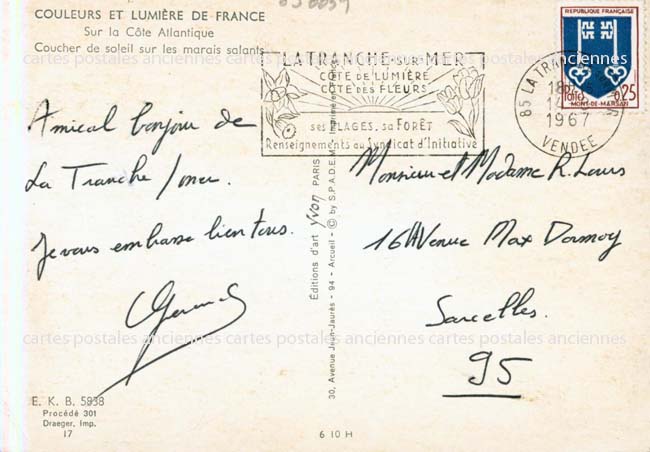 COULEURS ET LUMIÈRE DE FRANCE
Sur la Côte Atlantique
Coucher de soleil sur les marais salants
LA TRANCHE-SUR-MER
CÔTE DE LUMIÈRE
CÔTE DES FLEURS
ses PLAGES, sa FORÊT
Renseignements au Syndicat d'Initiative
85 LA TRANCHE
18
14
1967
VENDEE
REPUBLIQUE FRANÇAISE
0,25
MONT-DE-MARSAN
Amical bonjour de
La Tranche / mer.
Je vous embrasse bien tous.
Monsieur et Madame R. Louis
16 Avenue Max Dormoy
Sarcelles.
95
Éditions d'art yvon PARIS
30, Avenue Jean-Jaurès - 94 - Arcueil - © by S.P.A.D.E.M.
cartes postales anciennes cartes postales anciennes cartes postales anciennes
cartes postales anciennes cartes postales anciennes cartes postales anciennes
E. K. B. 5938
Procédé 301
Draeger, Imp.
17
6 10 H